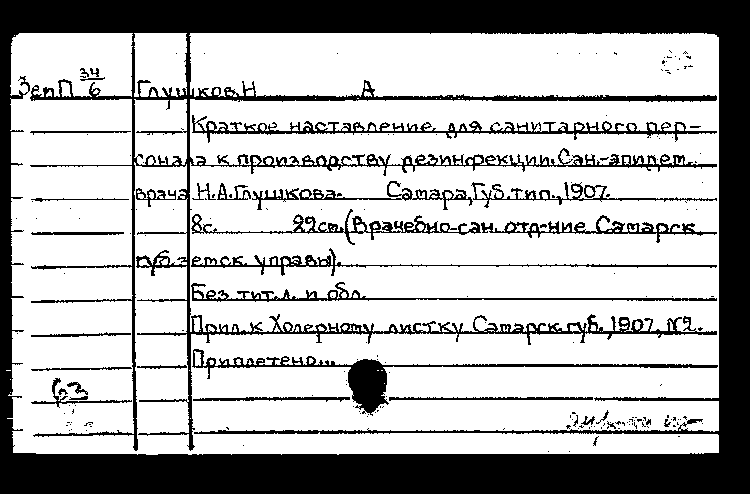 ЗемП 34/6 Глушков, Н А
Краткое наставление для санитарного пер-
сонала к производству дезинфекции. Сан.-эпидем.
врача Н.А.Глушкова. Самара, Губ.тип., 1907.
8с. 22см. (Врачебно-сан. отд-ние Самарск.
губ. земск. управы).
Без тит.л. и обл.
Прил. к Холерному листку Самарск. губ., 1907, №2.
Приплетено...
63